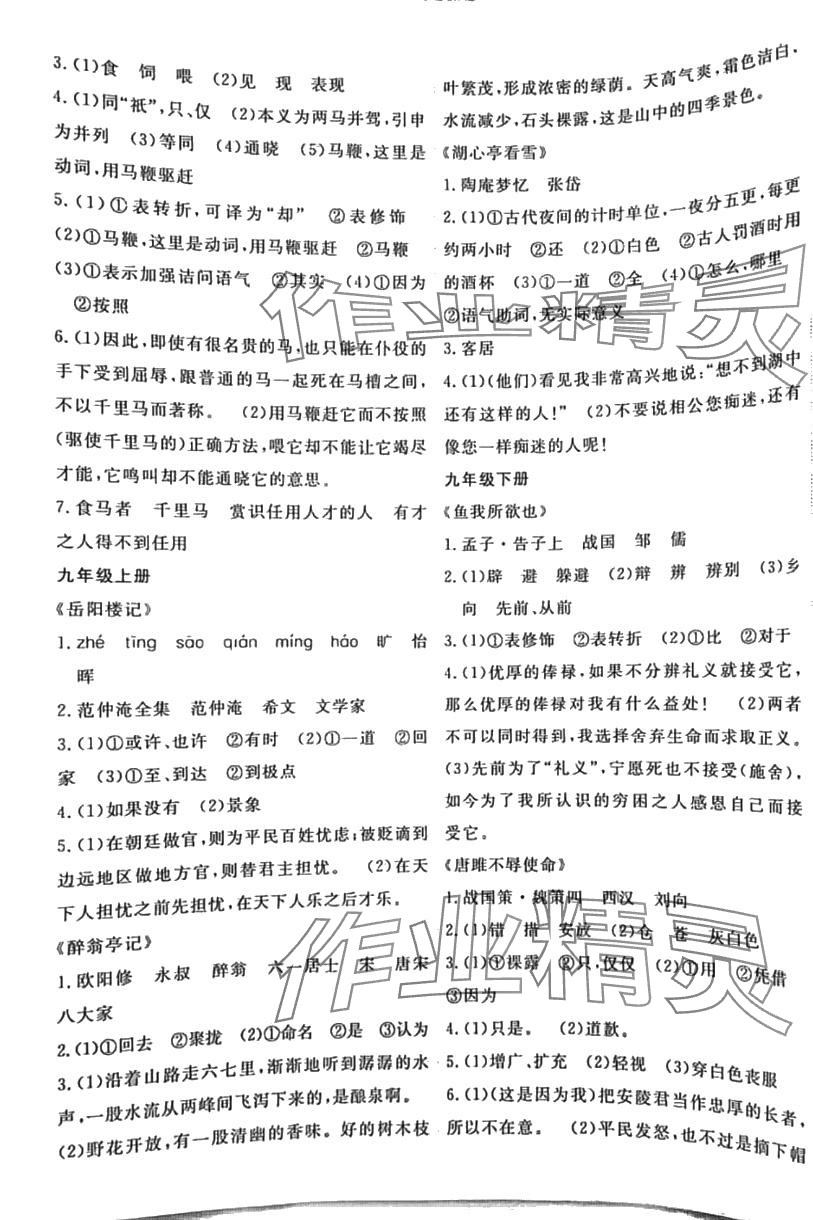 3.(1)食　饲　喂　(2)见　现　表现
4.(1)同“祇”,只、仅　(2)本义为两马并驾,引申
为并列　(3)等同　(4)通晓　(5)马鞭,这里是
动词,用马鞭驱赶
5.(1)①表转折,可译为“却”　②表修饰
(2)①马鞭,这里是动词,用马鞭驱赶　②马鞭
(3)①表示加强诘问语气　②其实　(4)①因为
②按照
6.(1)因此,即使有很名贵的马,也只能在仆役的
手下受到屈辱,跟普通的马一起死在马槽之间,
不以千里马而著称。　(2)用马鞭赶它而不按照
(驱使千里马的)正确方法,喂它却不能让它竭尽
才能,它鸣叫却不能通晓它的意思。
7.食马者　千里马　赏识任用人才的人　有才
之人得不到任用
九年级上册
《岳阳楼记》
1.zhé　tīng　sāo　qián　míng　háo　旷　怡
晖
2.范仲淹全集　范仲淹　希文　文学家
3.(1)①或许、也许　②有时　(2)①一道　②回
家　(3)①至、到达　②到极点
4.(1)如果没有　(2)景象
5.(1)在朝廷做官,则为平民百姓忧虑;被贬谪到
边远地区做地方官,则替君主担忧。　(2)在天
下人担忧之前先担忧,在天下人乐之后才乐。
《醉翁亭记》
1.欧阳修　永叔　醉翁　六一居士　宋　唐宋
八大家
2.(1)①回去　②聚拢　(2)①命名　②是　③认为
3.(1)沿着山路走六七里,渐渐地听到潺潺的水
声,一股水流从两峰间飞泻下来的,是酿泉啊。
(2)野花开放,有一股清幽的香味。好的树木枝
叶繁茂,形成浓密的绿荫。天高气爽,霜色洁白,
水流减少,石头裸露,这是山中的四季景色。
《湖心亭看雪》
1.陶庵梦忆　张岱
2.(1)①古代夜间的计时单位,一夜分五更,每更
约两小时　②还　(2)①白色　②古人罚酒时用
的酒杯　(3)①一道　②全　(4)①怎么,哪里
②语气助词,无实际意义
3.客居
4.(1)(他们)看见我非常高兴地说:“想不到湖中
还有这样的人!”　(2)不要说相公您痴迷,还有
像您一样痴迷的人呢!
九年级下册
《鱼我所欲也》
1.孟子·告子上　战国　邹　儒
2.(1)辟　避　躲避　(2)辩　辨　辨别　(3)乡
向　先前、从前
3.(1)①表修饰　②表转折　(2)①比　②对于
4.(1)优厚的俸禄,如果不分辨礼义就接受它,
那么优厚的俸禄对我有什么益处!　(2)两者
不可以同时得到,我选择舍弃生命而求取正义。
(3)先前为了“礼义”,宁愿死也不接受(施舍),
如今为了我所认识的穷困之人感恩自己而接
受它。
《唐雎不辱使命》
1.战国策·魏策四　西汉　刘向
2.(1)错　措　安放　(2)仓　苍　灰白色
3.(1)①裸露　②只,仅仅　(2)①用　②凭借
③因为
4.(1)只是。　(2)道歉。
5.(1)增广、扩充　(2)轻视　(3)穿白色丧服
6.(1)(这是因为我)把安陵君当作忠厚的长者,
所以不在意。　(2)平民发怒,也不过是摘下帽
作业精灵
作业精灵